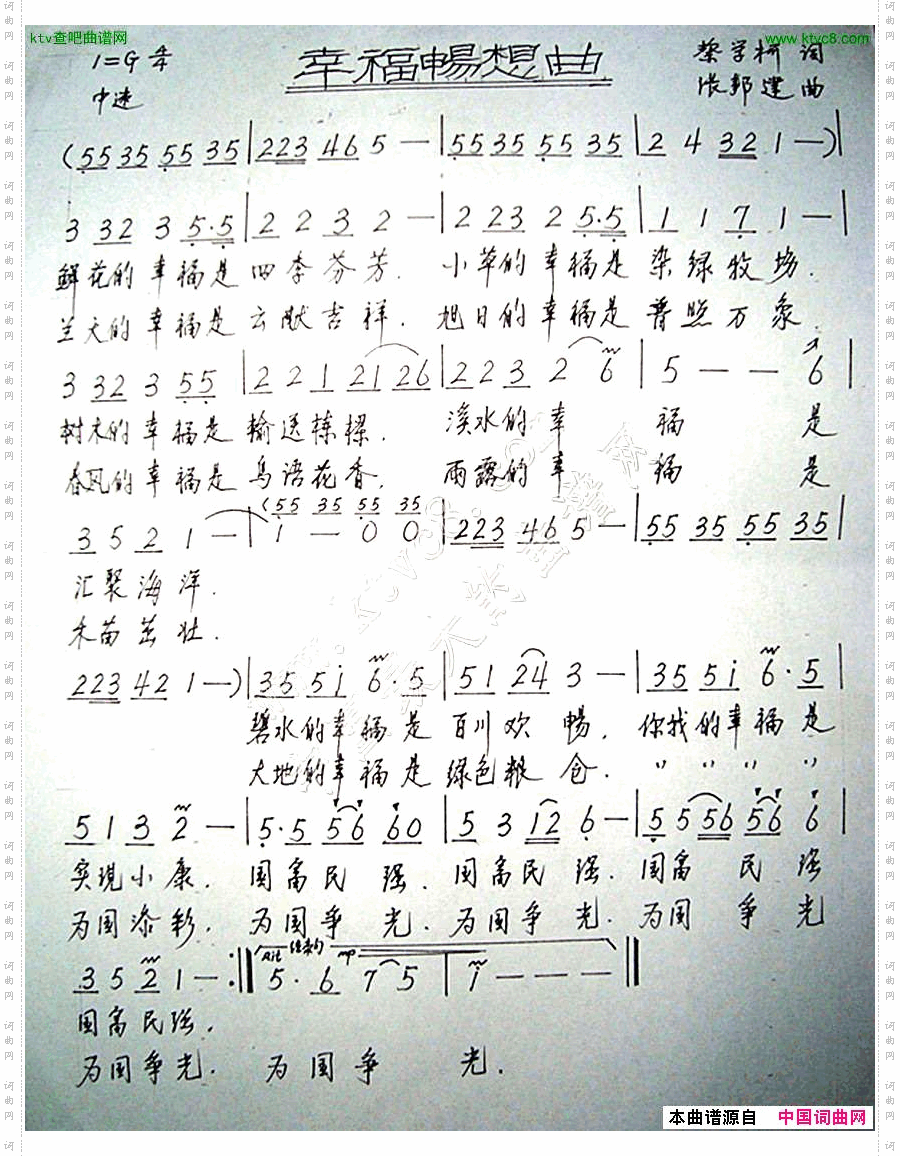 ktv查吧曲谱网
www.ktvc8.com
幸福暢想曲
1=G 4/4
黎学柯 词
中速
张邦建 曲
(55 35 55 35 | 223 46 5 — | 55 35 55 35 | 2 4 32 1 —)|
3 32 3 5·5 | 2 2 3 2 — | 2 23 2 5·5 | 1 1 7 1 — |
鲜花的幸福是四季芬芳. 小草的幸福是染绿牧场.
兰天的幸福是云献吉祥. 旭日的幸福是普照万象.
3 32 3 55 | 2 2 1 21 26 | 2 2 3 2 6 | 5 — — 6 |
树木的幸福是输送栋樑. 溪水的幸福是
春风的幸福是鸟语花香. 雨露的幸福是
(55 35 55 35
3 5 2 1 — | 1 — 0 0 | 223 46 5 — | 55 35 55 35 |
汇聚海洋.
禾苗茁壮.
223 42 1 —) | 35 5i 6·5 | 51 24 3 — | 35 5i 6·5 |
碧水的幸福是百川欢畅. 你我的幸福是
大地的幸福是绿色粮仓. 〃 〃 〃 〃 〃
5 1 3 2 — | 5·5 56 60 | 5 3 12 6 — | 5 5 56 56 6 |
实现小康. 国富民强. 国富民强. 国富民强
为国添彩. 为国争光. 为国争光. 为国争光
Rit 结束句 mp
3 5 2 1 — :‖ 5· 6 7 5 | i — — — ‖
国富民强.
为国争光. 为国争光.
本曲谱源自 中国词曲网